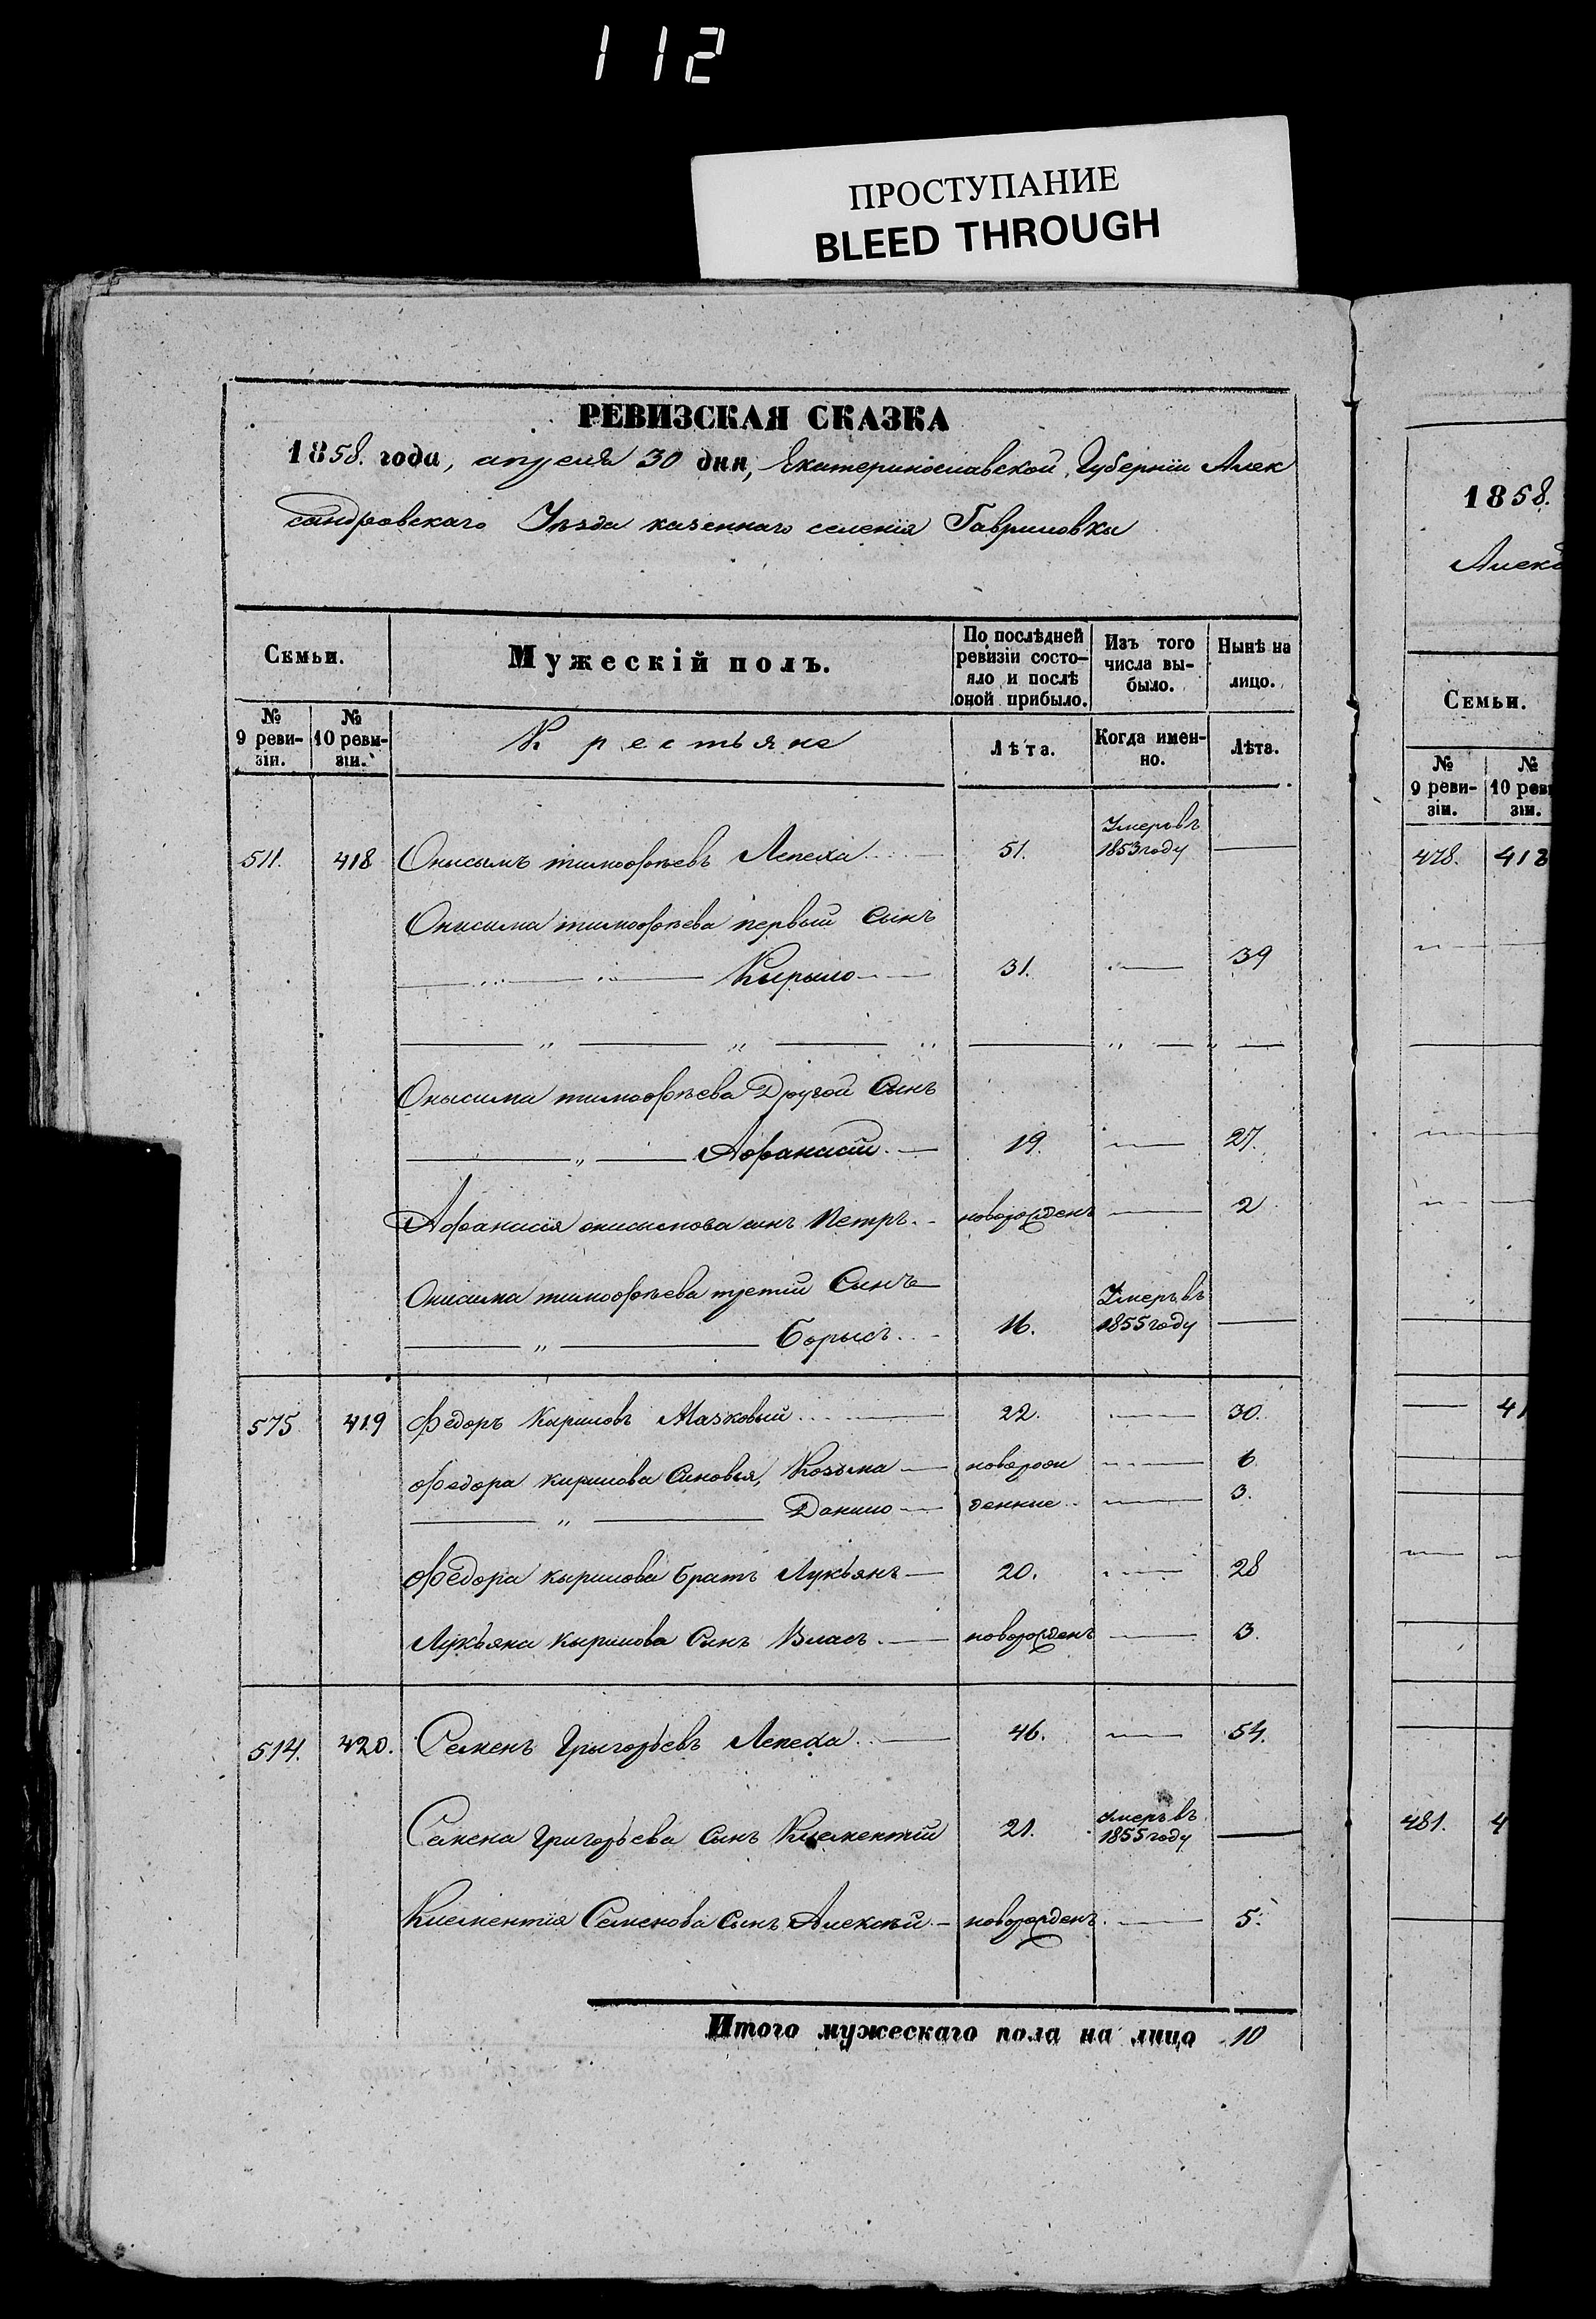 112
ПРОСТУПАНИЕ
BLEED THROUGH
РЕВИЗСКАЯ СКАЗКА
1858. года, апреля 30 дня, Екатеринославской Губернiи Алек
сандровскаго Уѣзда казеннаго селенiя Гавриловки
Семьи.
Мужескiй полъ.
По послѣдней ревизiи состо-яло и послѣ оной прибыло.
Изъ того числа вы-было.
Нынѣ на лицо.
№ 9 реви-зiи.
№ 10 реви-зiи.
Крестьяне
Лѣта.
Когда имен-но.
Лѣта.
511. 418 Онисымъ тимофѣевъ Лепеха 51. Умеръ въ 1853 году —
Онисима тимофѣева первый Сынъ
— " — " — Кырыло — 31. — 39
— " — " — " — " — " —
Онысима тимофѣева Другой Сынъ
— " — Афанасiй — 19. — 27.
Афанасiя онисымова сынъ Петръ. новорожденъ — 2
Онисима тимофѣева третiй Сынъ
— " — Борысъ. 16. Умеръ въ 1855 году —
575 419 Федоръ Кириловъ Мазковый 22. — 30.
Федора кирилова Сыновья, Козьма — новорож — 6
— " — Данило — денные — 3.
Федора кырилова братъ Лукьянъ — 20. — 28
Лукьяна кырилова Сынъ Власъ. — новорожденъ — 3.
514. 420. Семенъ Григорьевъ Лепеха. — 46. — 54.
Семена Григорьева сынъ Климентiй 21. умеръ въ 1855 году —
Климентiя Семенова Сынъ Алексѣй. — новорожденъ. — 5.
Итого мужескаго пола на лицо 10
1858.
Алекс
Семьи.
№ 9 реви-зiи.
№ 10 реви зiи.
478. 413
41
481. 4